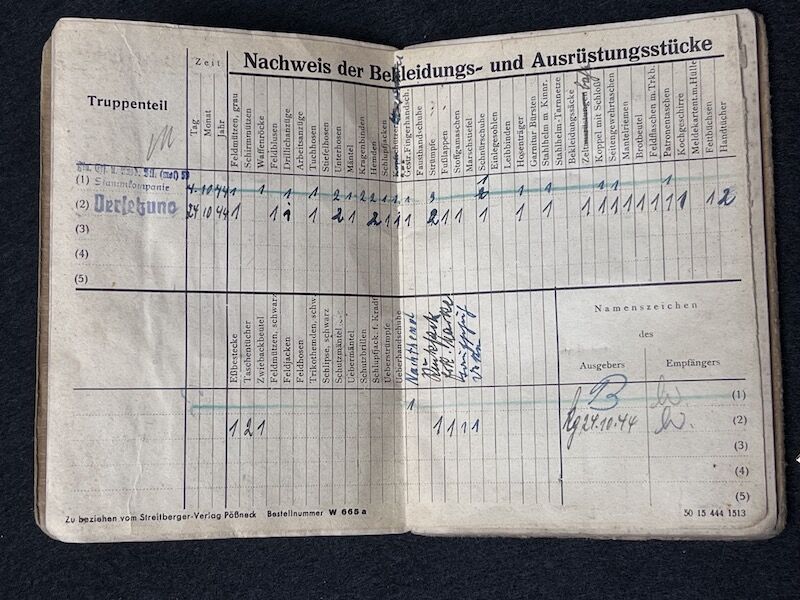 Nachweis der Bekleidungs- und Ausrüstungsstücke
Truppenteil
Zeit
Tag
Monat
Jahr
Feldmützen, grau
Schirmmützen
Waffenröcke
Feldblusen
Drillichanzüge
Arbeitsanzüge
Tuchhosen
Stiefelhosen
Unterhosen
Mäntel
Kragenbinden
Hemden
Schlupfjacken
Fingerhandsch.
Fausthandschuhe
Strümpfe
Fußlappen
Stoffgamaschen
Marschstiefel
Schnürschuhe
Einlegesohlen
Leibbinden
Hosenträger
Garnitur Bürsten
Stahlhelm m. Kinnr.
Stahlhelm-Tarnnetze
Bekleidungssäcke
Koppel mit Schloß
Seitengewehrtaschen
Mantelriemen
Brotbeutel
Feldflaschen m. Trkb.
Patronentaschen
Kochgeschirre
Meldekartent. m. Hülle
Fettbüchsen
Handtücher
(1) Stammkompanie 4. 10 44 1 1 1 1 1 2 1 2 2 1 1 1 3 1 1 1 1 1 1
(2) Versetzung 24 10 44 1 1 1 1 2 1 2 1 1 1 2 1 1 1 1 1 1 1 1 1 1 1 1 1 1 2
(3)
(4)
(5)
Eßbestecke
Taschentücher
Zwiebackbeutel
Feldmützen, schwarz
Feldjacken
Feldhosen
Trikothemden, schw.
Schlipse, schwarz
Schutzmäntel
Uebermäntel
Schutzbrillen
Schlupfjack. f. Kradf.
Ueberstrümpfe
Ueberhandschuhe
Nachthemd
Namenszeichen
des
Ausgebers
Empfängers
1 B (1)
1 2 1 1 1 1 1 24.10.44 (2)
(3)
(4)
(5)
Zu beziehen vom Streitberger-Verlag Pößneck Bestellnummer W 665 a
50 15 444 1513